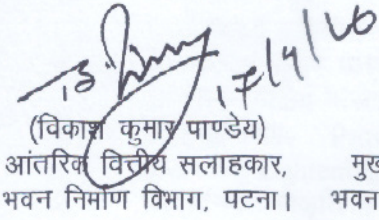 17/4/
(विकाश कुमार पाण्डेय)
आंतरिक वित्तीय सलाहकार, मुख
भवन निर्माण विभाग, पटना। भवन